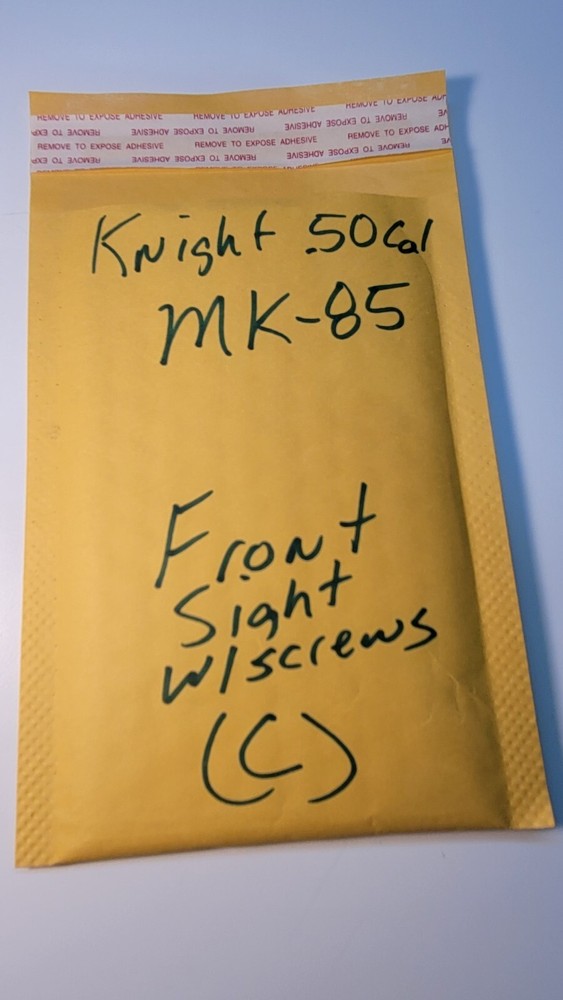 REMOVE TO EXPOSE ADHESIVE REMOVE TO EXPOSE ADHESIVE REMOVE TO EXPOSE
REMOVE TO EXPOSE ADHESIVE REMOVE TO EXPOSE ADHESIVE
REMOVE TO EXPOSE ADHESIVE REMOVE TO EXPOSE ADHESIVE REMOVE TO EXPOSE ADH
REMOVE TO EXPOSE ADHESIVE REMOVE TO EXPOSE ADHESIVE
Knight .50 Cal
MK-85
Front
Sight
w/screws
(C)